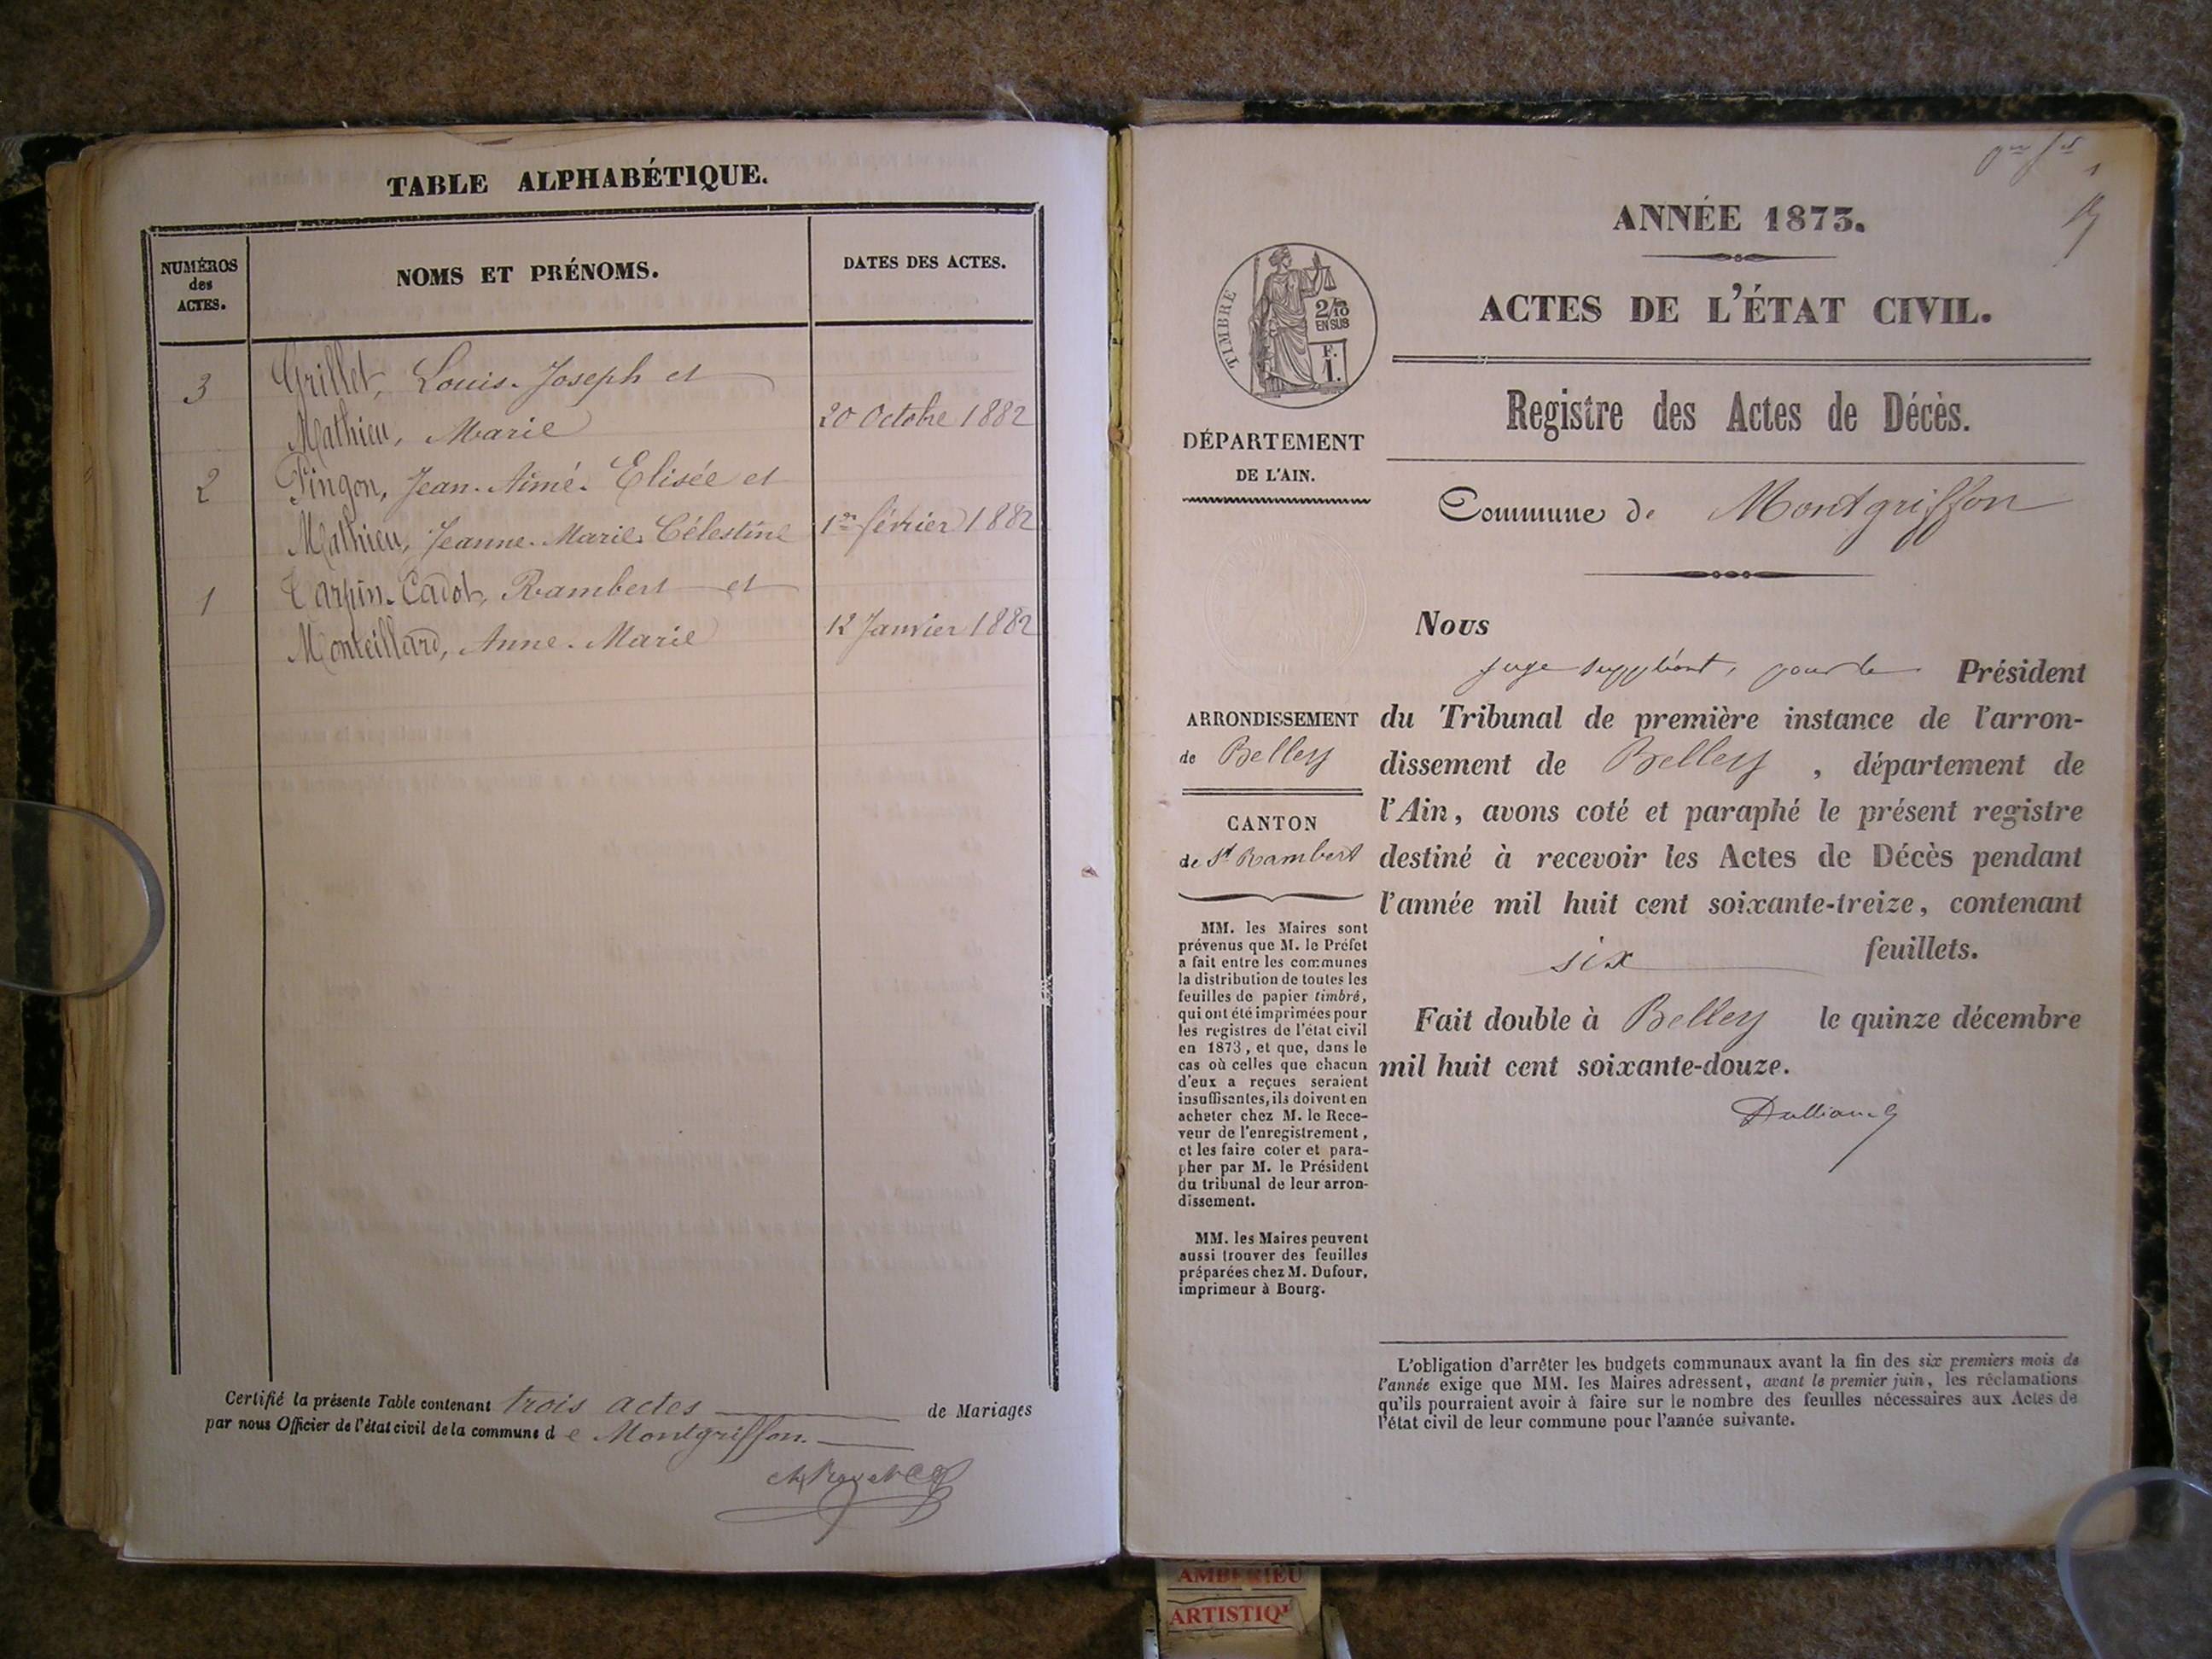 TABLE ALPHABÉTIQUE.
NUMÉROS
des
ACTES.
NOMS ET PRÉNOMS.
DATES DES ACTES.
3 Grillet, Louis-Joseph et
Mathieu, Marie 20 Octobre 1882
2 Pingon, Jean-Aimé-Elisée et
Mathieu, Jeanne-Marie-Célestine 1er février 1882
1 Tarpin-Cadot, Rambert et
Monteillard, Anne-Marie 12 Janvier 1882
Certifié la présente Table contenant trois actes de Mariages
par nous Officier de l'état civil de la commune de Montgriffon.
1
ANNÉE 1873.
ACTES DE L'ÉTAT CIVIL.
TIMBRE
2/10
EN SUS
F.
1.
Registre des Actes de Décès.
DÉPARTEMENT
DE L'AIN.
Commune de Montgriffon
Nous
juge suppléant, pour le Président
du Tribunal de première instance de l'arron-
dissement de Belley, département de
l'Ain, avons coté et paraphé le présent registre
destiné à recevoir les Actes de Décès pendant
l'année mil huit cent soixante-treize, contenant
six feuillets.
Fait double à Belley le quinze décembre
mil huit cent soixante-douze.
ARRONDISSEMENT
de Belley
CANTON
de St Rambert
MM. les Maires sont
prévenus que M. le Préfet
a fait entre les communes
la distribution de toutes les
feuilles de papier timbré,
qui ont été imprimées pour
les registres de l'état civil
en 1873, et que, dans le
cas où celles que chacun
d'eux a reçues seraient
insuffisantes, ils doivent en
acheter chez M. le Rece-
veur de l'enregistrement,
et les faire coter et para-
pher par M. le Président
du tribunal de leur arron-
dissement.
MM. les Maires peuvent
aussi trouver des feuilles
préparées chez M. Dufour,
imprimeur à Bourg.
L'obligation d'arrêter les budgets communaux avant la fin des six premiers mois de
l'année exige que MM. les Maires adressent, avant le premier juin, les réclamations
qu'ils pourraient avoir à faire sur le nombre des feuilles nécessaires aux Actes de
l'état civil de leur commune pour l'année suivante.
AMBERIEU